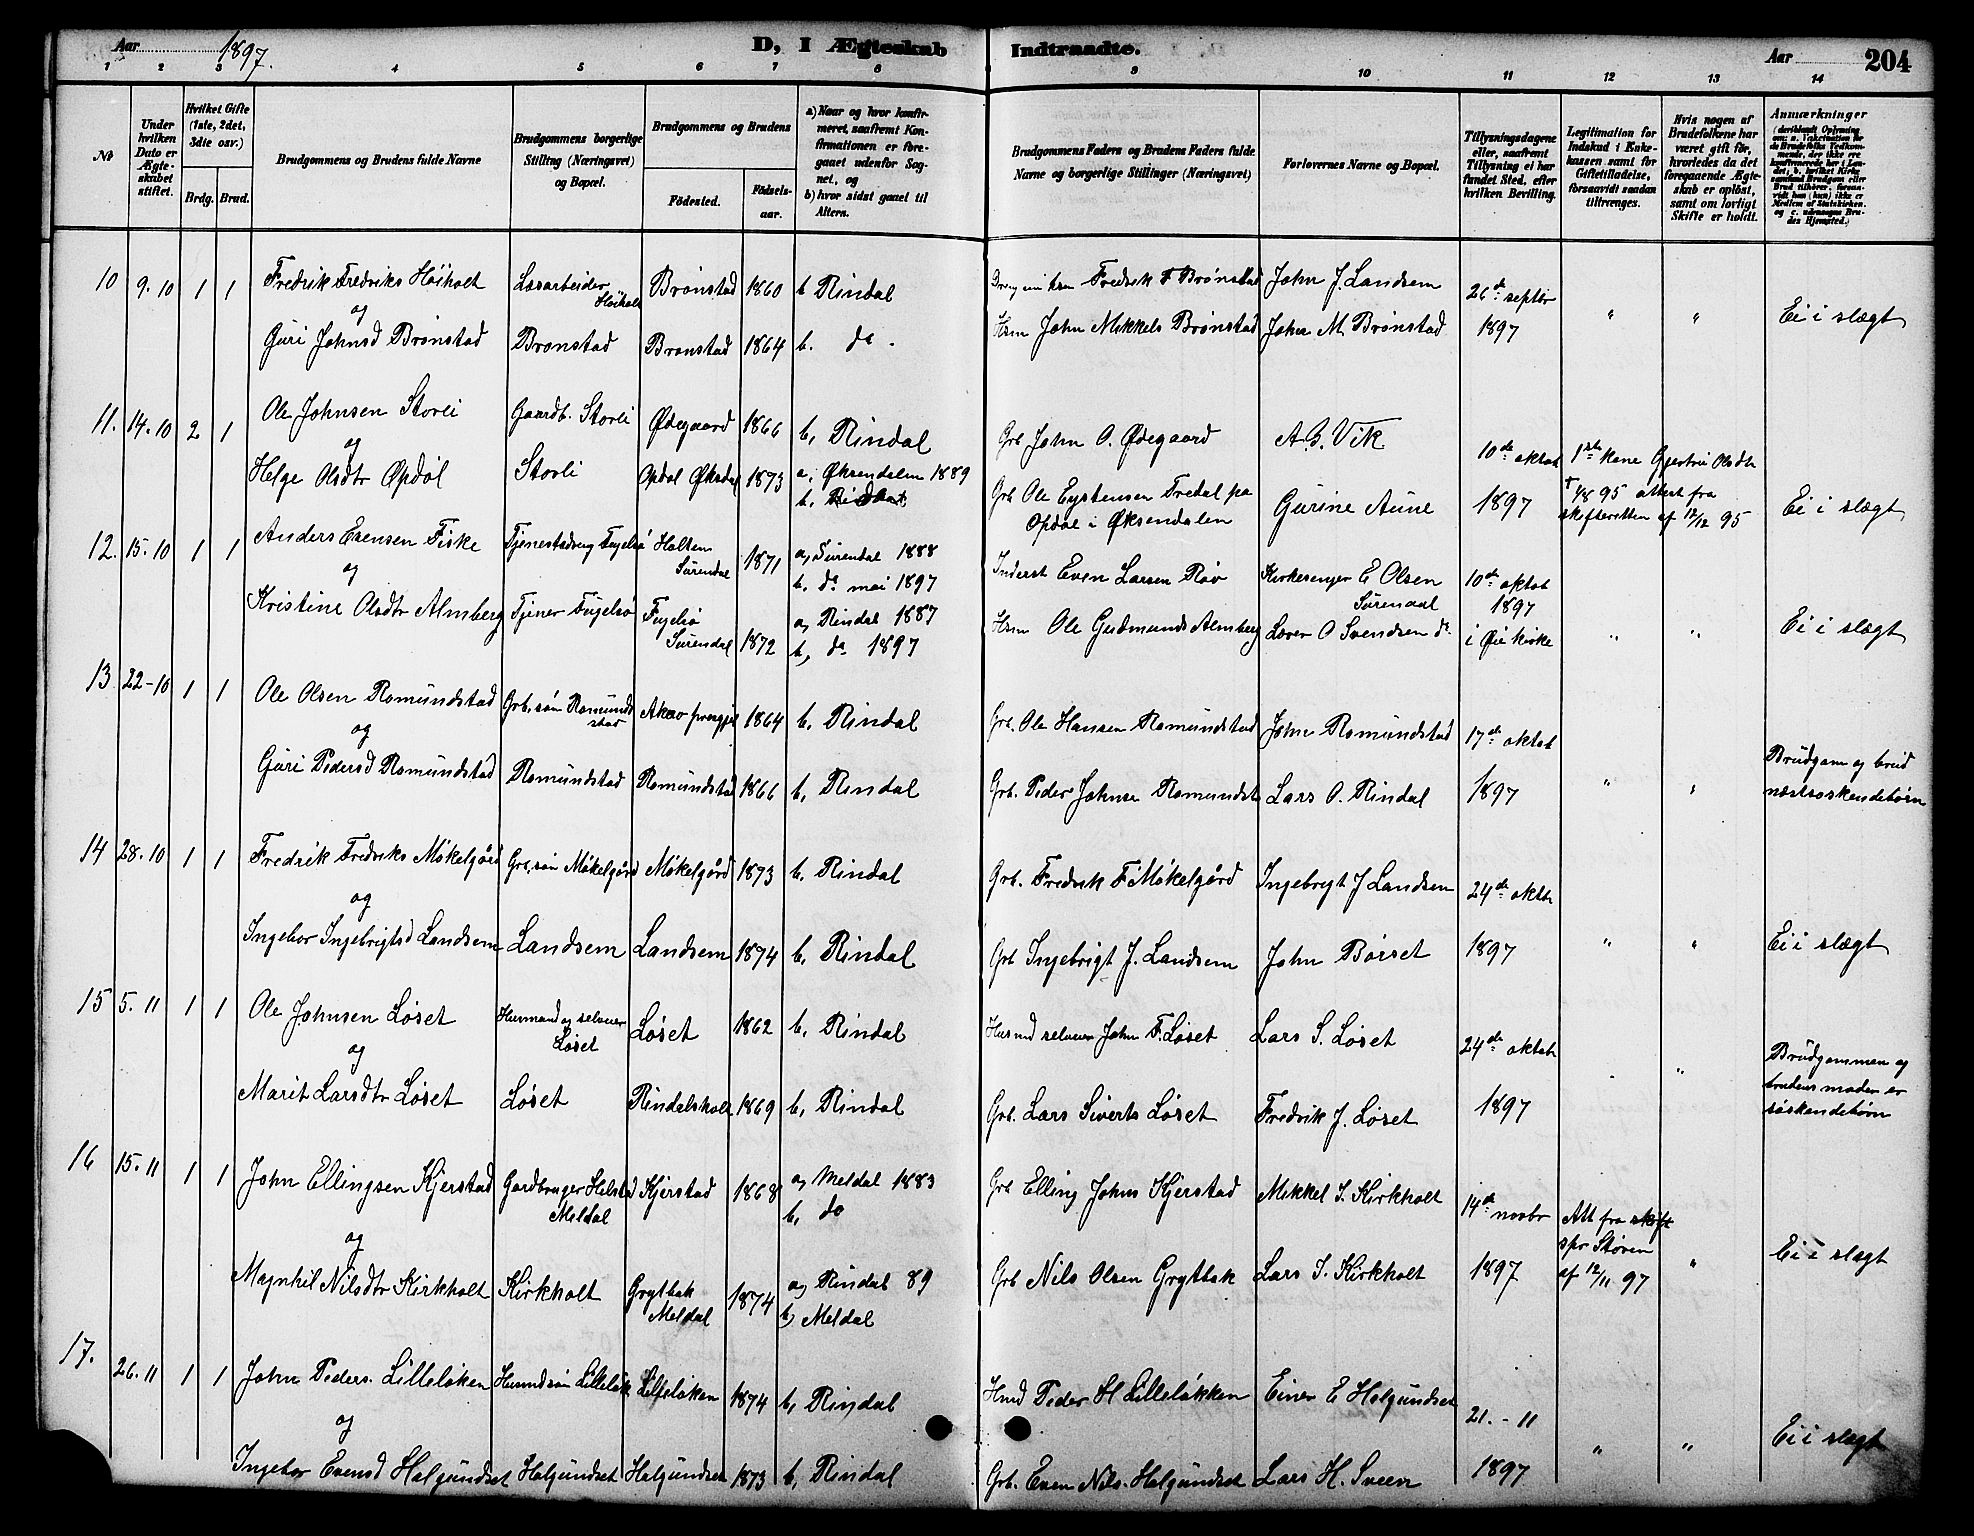 Aar 1897.
D, I Ægteskab Indtraadte.
Aar 204
1 2 3 4 5 6 7 8 9 10 11 12 13 14
№
Under hvilken Dato er Ægteskabet stiftet.
Hvilket Gifte (1ste, 2det, 3die osv.)
Brdg. Brud.
Brudgommens og Brudens fulde Navne
Brudgommens borgerlige Stilling (Næringsvei) og Bopæl.
Brudgommens og Brudens
Fødested.
Fødselsaar.
a) Naar og hvor konfirmeret, saafremt Konfirmationen er foregaaet udenfor Sognet, og
b) hvor sidst gaaet til Alters.
Brudgommens Faders og Brudens Faders fulde Navne og borgerlige Stillinger (Næringsvei)
Forlovernes Navne og Bopæl.
Tillysningsdagene eller, saafremt Tillysning ei har fundet Sted, efter hvilken Bevilling.
Legitimation for Indskud i Enkekassen samt for Giftetilladelse, forsaavidt saadan tiltrænges.
Hvis nogen af Brudefolkene har været gift før, hvorledes da det foregaaende Ægteskab er opløst, samt om lovligt Skifte er holdt.
Anmærkninger
10 9.10 1 1 Fredrik Fredriks Høiholt Løsarbeider Høiholt Brønstad 1860 b Rindal Fredrik F Brønstad John J. Landsem 26de septbr " " Ei i slægt
og
Guri Johnsd Brønstad Brønstad Brønstad 1864 b. do. Hsm John Mikkels Brønstad John M. Brønstad 1897
11. 14.10 2 1 Ole Johnsen Storli Gaardb. Storli Ødegaard 1866 b, Rindal Grb John O. Ødegaard A.B. Vik 10de oktob 1ste kone Gjertru Olsdtr
og
Helge Olsdtr Opdøl Storli Opdal Øksdal 1873 a, Øksendalen 1889 b. Rindal Grb Ole Eystensen Tredal paa Opdal i Øksendalen Gurine Aune 1897 † 4/8 95 attest fra skifteretten af 12/12 95 Ei i slægt
12. 15.10 1 1 Anders Evensen Fiske Tjenestedreng Fugelsø Holten Surendal 1871 a, Surendal 1888 b. do mai 1897 Inderst Even Larsen Røv Kirkesanger E Olsen Surendal 10de oktob 1897
og
Kristine Olsdtr Almberg Tjener Fugelsø Fugelsø Surendal 1872 a, Rindal 1887 b, do 1897 Hsm Ole Gudmunds Almberg Lærer O Svendsen do i Øie kirke " " Ei i slægt
13 22-10 1 1 Ole Olsen Romundstad Grb. søn Romundstad 1864 b. Rindal Grb. Ole Hansen Romundstad John Romundstad 17de oktob
og
Guri Pedersd Romundstad Romundstad Romundstad 1866 b, Rindal Grb. Peder Johnsen Romundst Lars O. Rindal 1897 " " Brudgom og brud næstsøskendebørn
14 28.10 1 1 Fredrik Fredriks Møkelgård Grb. søn Møkelgård Møkelgård 1873 b. Rindal Grb. Fredrik F Møkelgård Ingebrigt J Landsem 24de oktob
og
Ingebor Ingebrigtsd Landsem Landsem Landsem 1874 b, Rindal Grb Ingebrigt J. Landsem John Børset 1897 " " Ei i slægt
15 5.11 1 1 Ole Johnsen Løset Husmand og selveier Løset Løset 1862 b, Rindal Husmd selveier John F. Løset Lars S. Løset 24de oktob
og
Marit Larsdtr Løset Løset Rindalsholt 1869 b, Rindal Grb. Lars Siverts Løset Fredrik J. Løset 1897 " Brudgommen og brudens moder er søskendebørn
16 15.11 1 1 John Ellingsen Kjerstad Gardbruger Helstad Meldal Kjerstad 1868 a, Meldal 1883 b, do Grb Elling Johns Kjerstad Mikkel S. Kirkholt 14de novbr Att fra skift spr Støren
og
Magnhil Nilsdtr Kirkholt Kirkholt Grytbak Meldal 1874 a, Rindal 89 b) Meldal Grb Nils Olsen Grytbak Lars S. Kirkholt 1897 af 12/11 97 " Ei i slægt
17. 26.11 1 1 John Peders. Lilleløken Husmdsøn Lilleløk Lilleløken 1874 b, Rindal Hmd Peder H Lilleløkken Einer E Halgundset 21.-11
og
Ingebor Evensd Halgundset Halgundset Halgundset 1873 b, Rindal Grb. Even Nils. Halgundset Lars H. Sveen 1897 " " Ei i slægt